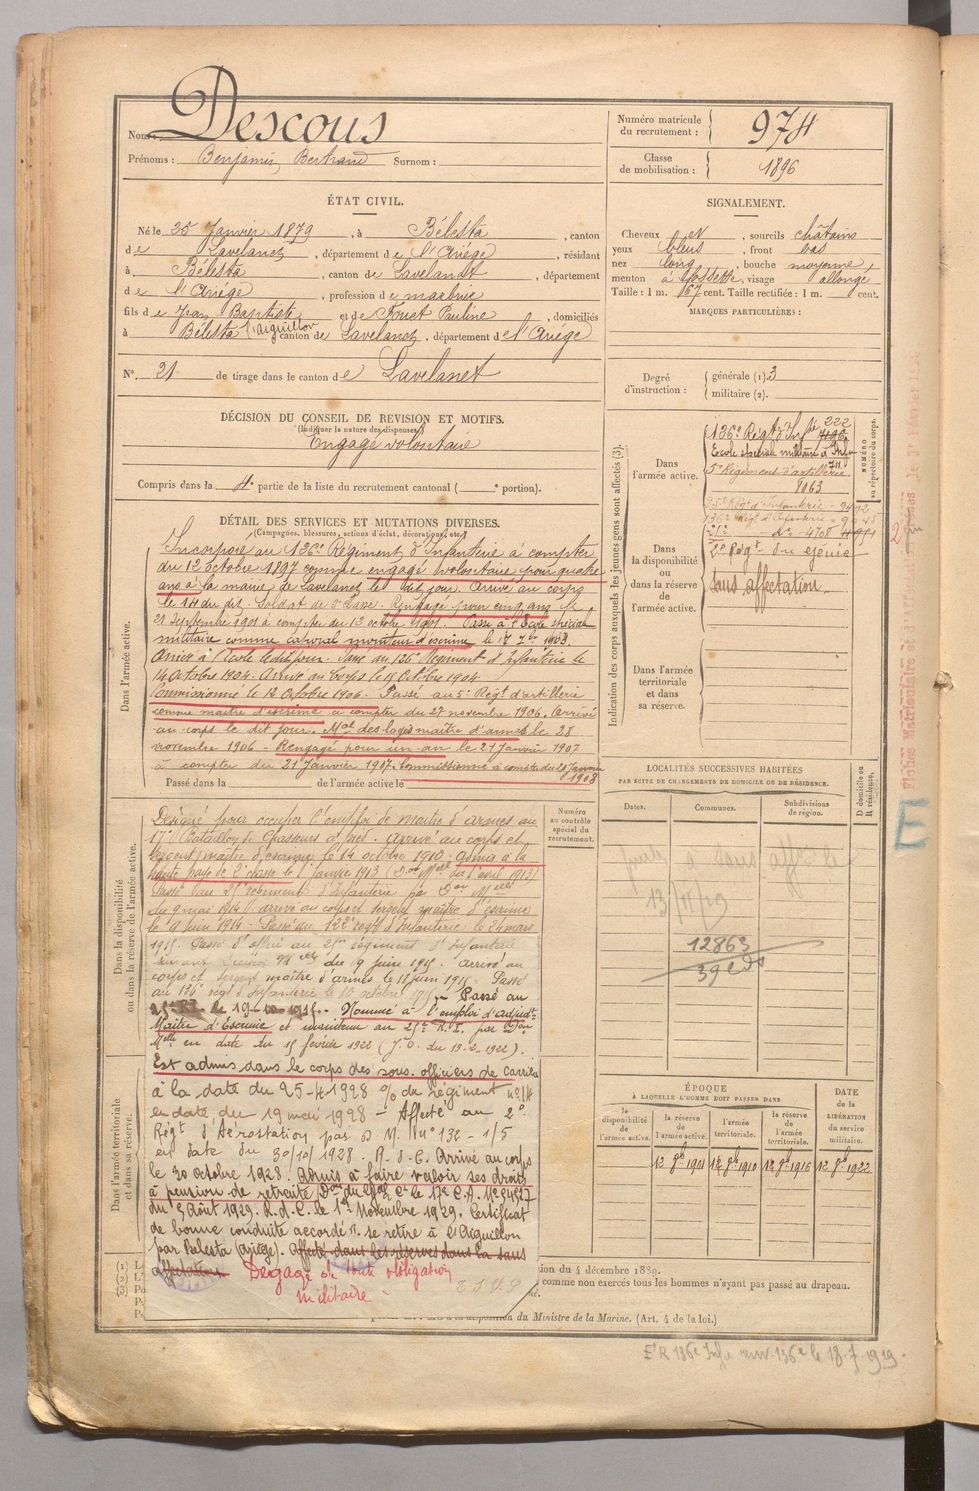 Nom : Descous
Prénoms : Benjamin, Bertrand Surnom :
Numéro matricule du recrutement : 974
Classe de mobilisation : 1896
ÉTAT CIVIL.
Né le 25 Janvier 1879, à Bélesta, canton
de Lavelanet, département de l'Ariége, résidant
à Bélesta, canton de Lavelanet, département
de l'Ariége, profession de marbrier
fils de Jean Baptiste et de Fouet Pauline, domiciliés
à Bélesta l'Aiguillon canton de Lavelanet, département de l'Ariége
N° 21 de tirage dans le canton de Lavelanet
SIGNALEMENT.
Cheveux et, sourcils châtains
yeux bleus, front bas
nez long, bouche moyenne,
menton à fossette, visage allongé
Taille : 1 m. 67 cent. Taille rectifiée : 1 m. cent.
MARQUES PARTICULIÈRES :
Degré d'instruction : générale (1). 3
militaire (2).
DÉCISION DU CONSEIL DE REVISION ET MOTIFS.
(Indiquer la nature des dispenses)
Engagé volontaire
Compris dans la 4e partie de la liste du recrutement cantonal ( e portion).
DÉTAIL DES SERVICES ET MUTATIONS DIVERSES.
(Campagnes, blessures, actions d'éclat, décorations, etc.)
Dans l'armée active.
Incorporé au 136e Régiment d'Infanterie à compter
du 12 octobre 1897 comme engagé volontaire pour quatre
ans à la mairie de Lavelanet le dit jour. Arrivé au corps
le 14 du dit. Soldat de 2e classe. Rengagé pour cinq ans le
21 Septembre 1901 à compter du 12 octobre 1901. Passé à l'Ecole spéciale
militaire comme caporal moniteur d'escrime le
Arrivé à l'Ecole le dit jour. Passé au 136e Régiment d'Infanterie le
14 Octobre 1904. Arrivé au Corps le 15 Octobre 1904
Commissionné le 12 Octobre 1906. Passé au 5e Régt d'artillerie
comme maître d'escrime à compter du 27 novembre 1906. Arrivé
au corps le dit jour. Mal des logis maître d'armes le 28
novembre 1906 - Rengagé pour un an le 21 Janvier 1907
à compter du 21 Janvier 1907. Commissionné à compter du 21 Janvier
1908
Passé dans la de l'armée active le
Dans la disponibilité ou dans la réserve de l'armée active.
Désigné pour occuper l'emploi de maître d'armes au
17e Bataillon de Chasseurs à pied. Arrivé au corps et
sergent maître d'escrime le 14 octobre 1910. Admis à la
haute paye de 2e classe le 1 Janvier 1913
Passé au 25e régiment d'Infanterie par Don Melle
du 9 mai 1914 arrivé au corps et sergent maître d'escrime
le 9 Juin 1914. Passé au 122e regt d'Infanterie le 24 mars
1915. Passé d'office au 25me régiment d'Infanterie
suivant Décision Melle du 9 juin 1915. arrivé au
corps et sergent maître d'armes le 18 juin 1915. Passé
au 136e regt d'Infanterie le 10 octobre 1915. Passé au
25e RI le 19-10-1915. Nommé à l'emploi d'adjudt
Maître d'Escrime et maintenu au 25e R.I. par Don
Melle en date du 15 février 1922 (J.O. du 19-2-1922).
Est admis dans le corps des sous officiers de carrière
à la date du 25-4-1928 % du régiment n° 14
en date du 19 mai 1928 - Affecté au 2e
Régt d'Aérostation par D.M. n° 132 - 1/5
en date du 30/10/1928. R.d.C. Arrivé au corps
le 30 octobre 1928. Admis à faire valoir ses droits
à pension de retraite
du 5 Août 1929. R.d.C. le 1er Novembre 1929. Certificat
de bonne conduite accordé. Se retire à l'Aiguillon
par Bélesta (Ariège). Affecté dans les réserves dans la sans
affectation. Dégagé de toute obligation
militaire
Dans l'armée territoriale et dans sa réserve.
Numéro au contrôle spécial du recrutement.
Indication des corps auxquels les jeunes gens sont affectés (3).
NUMÉRO au répertoire du corps.
Dans l'armée active.
136e Régt d'Infie 222
Ecole spéciale militaire d'Infie
5e Régiment d'artillerie
8063
Dans la disponibilité ou dans la réserve de l'armée active.
25e Régt d'Infanterie
136e Régt d'Infanterie
2e Régt du génie
sans affectation
Dans l'armée territoriale et dans sa réserve.
LOCALITÉS SUCCESSIVES HABITÉES
PAR SUITE DE CHANGEMENTS DE DOMICILE OU DE RÉSIDENCE.
Dates. Communes. Subdivisions de région. D domicile ou R résidence.
13/11/29
12863
ÉPOQUE
À LAQUELLE L'HOMME DOIT PASSER DANS
la disponibilité de l'armée active. la réserve de l'armée active. l'armée territoriale. la réserve de l'armée territoriale.
DATE de la LIBÉRATION du service militaire.
12 8bre 1901 12 8bre 1910 12 8bre 1916 12 8bre 1922
(1)
(2)
(3)
tion du 4 décembre 1889.
comme non exercés tous les hommes n'ayant pas passé au drapeau.
disposition du Ministre de la Marine. (Art. 4 de la loi.)